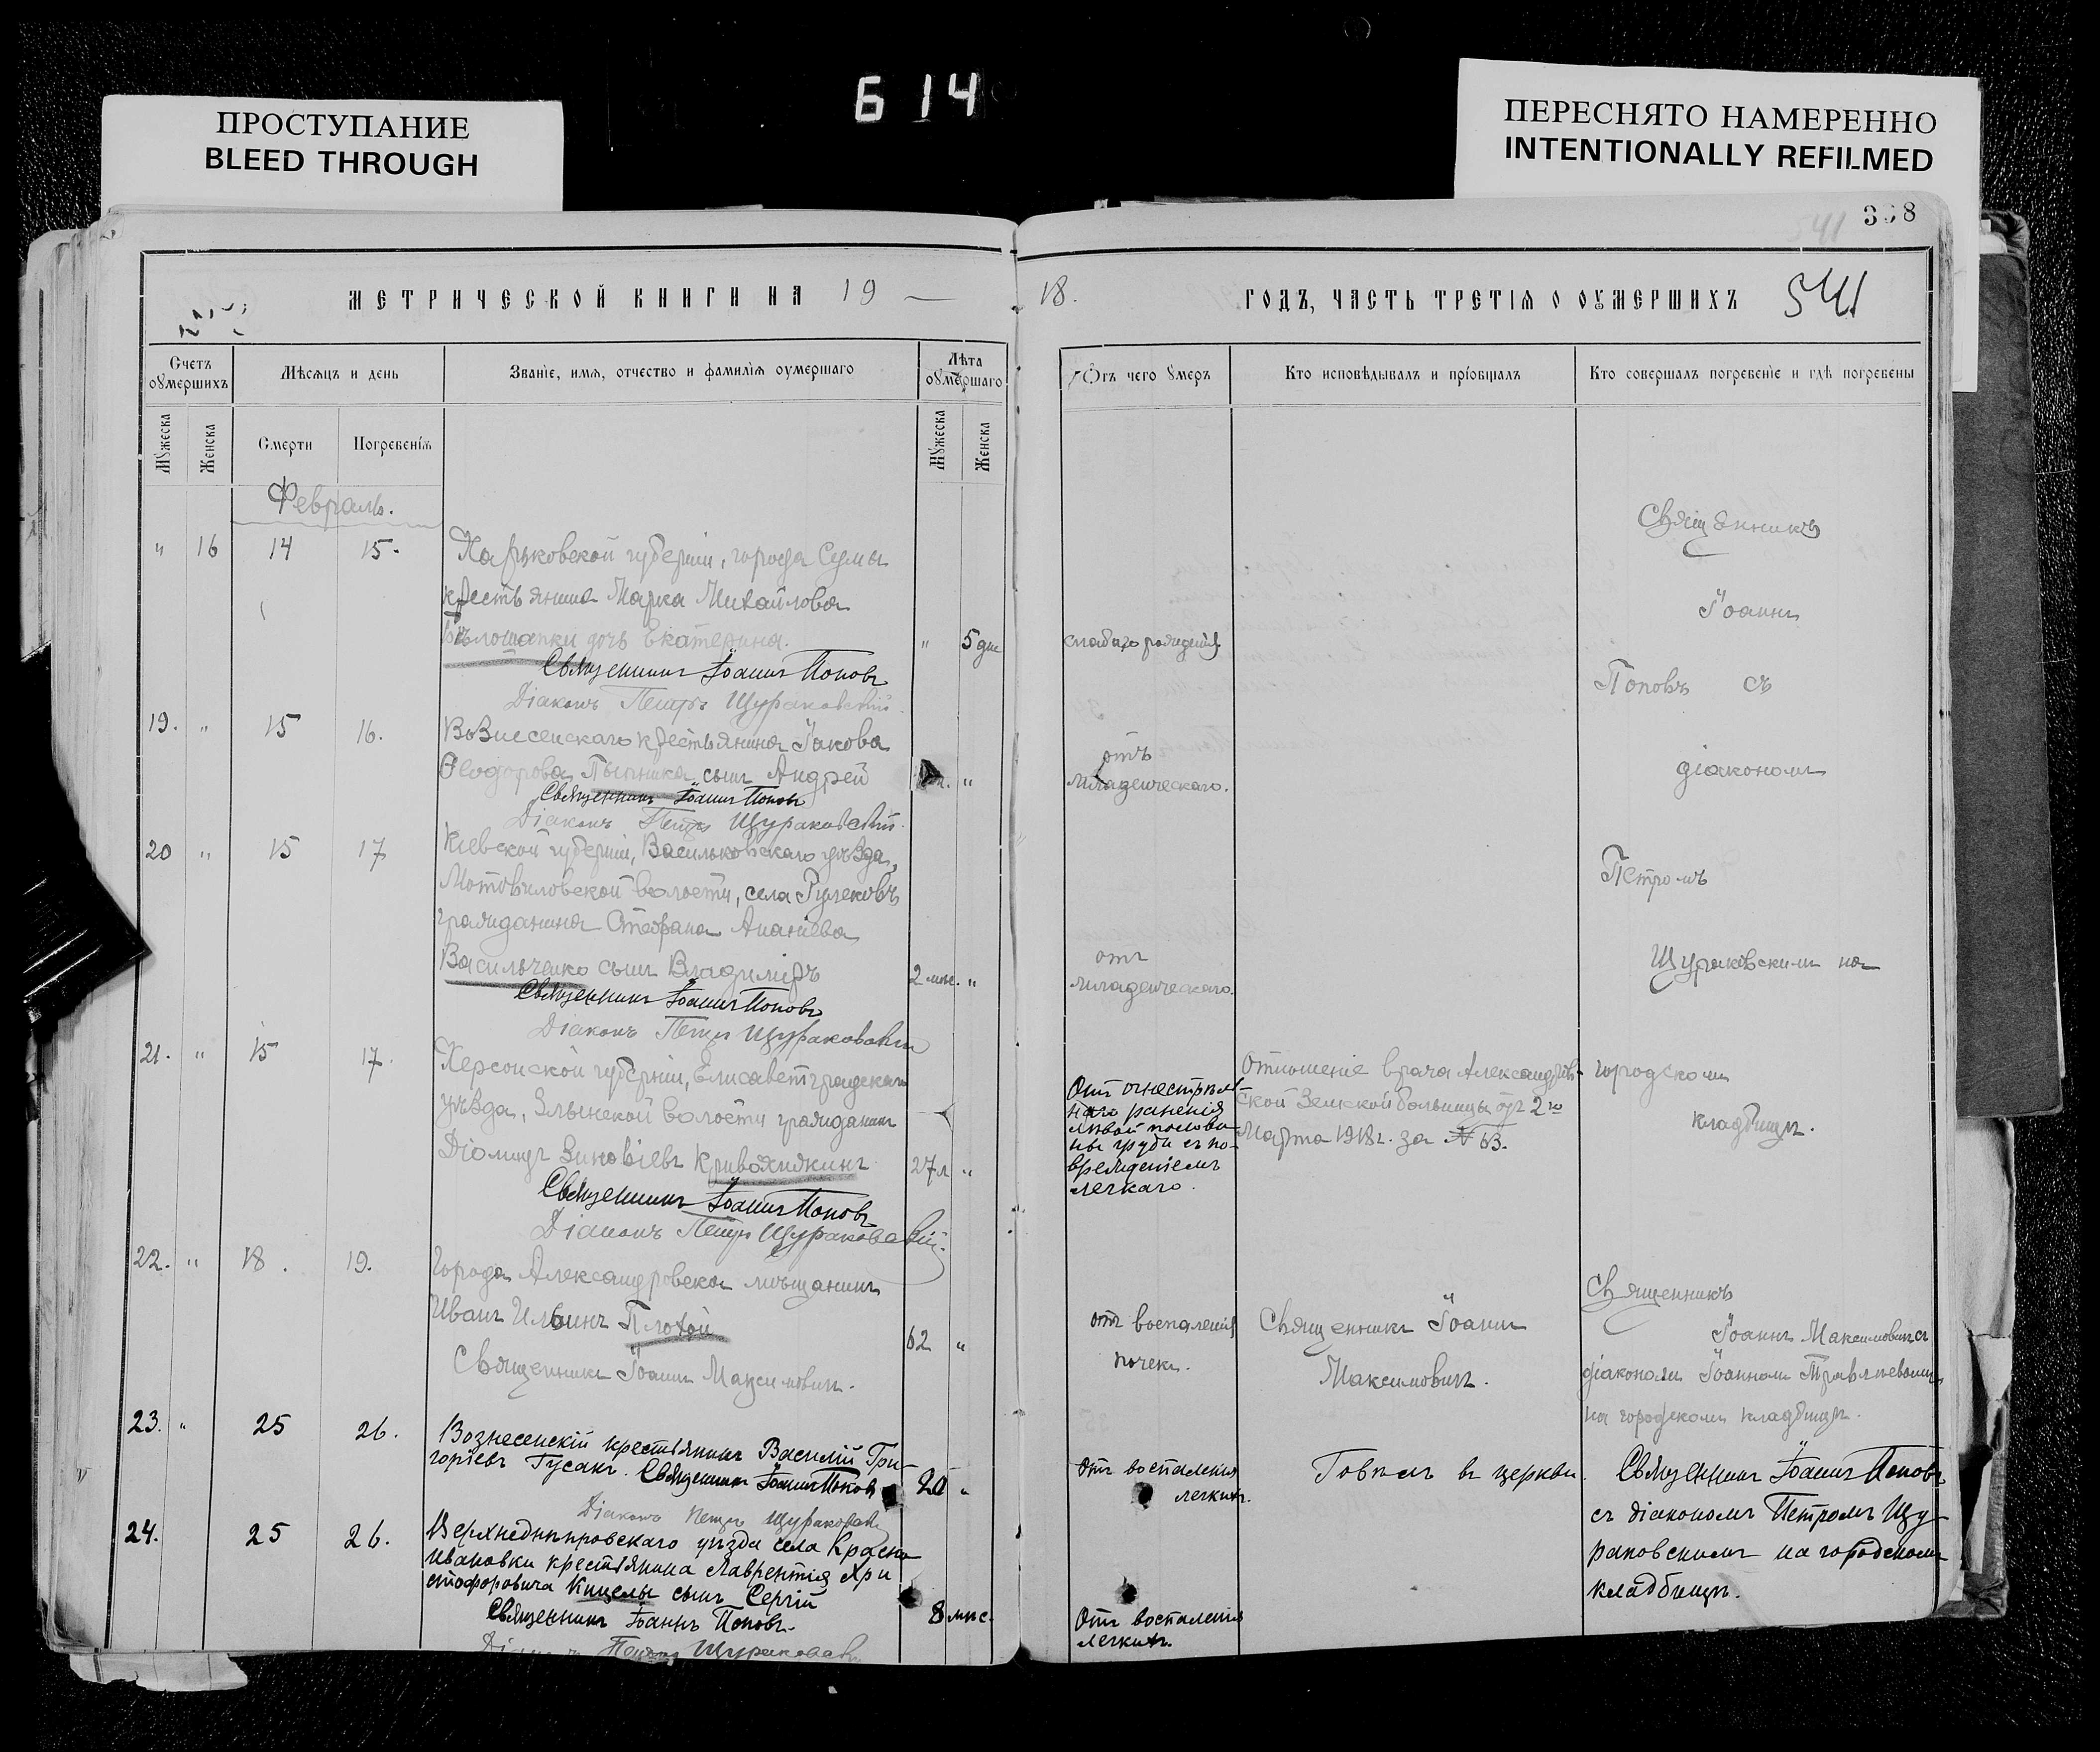 6 14
ПРОСТУПАНИЕ
BLEED THROUGH
ПЕРЕСНЯТО НАМЕРЕННО
INTENTIONALLY REFILMED
541
МЕТРИЧЕСКОЙ КНИГИ НА 19 —
18. ГОДЪ, ЧАСТЬ ТРЕТІЯ О ОУМЕРШИХЪ 541
Счетъ оумершихъ
Мѣсяцъ и день
Званіе, имя, отчество и фамилія оумершаго
Лѣта оумершаго
Отъ чего умеръ
Кто исповѣдывалъ и пріобщалъ
Кто совершалъ погребеніе и гдѣ погребены
Мужеска
Женска
Смерти
Погребенія
Мужеска
Женска
Февраль.
" 16 14 15.
Харьковской губерніи, города Сумы
крестьянина Марка Михайлова
Бѣлошапки дочь Екатерина.
" 5 дн
слабаго рожденія
Священникъ Іоаннъ Поповъ
Діаконъ Петръ Щураковскій
19. " 15 16.
Вознесенскаго крестьянина Іакова
Ѳеодорова Пыпника сынъ Андрей
"
отъ
младенческаго.
Священникъ Іоаннъ Поповъ
Діаконъ Петръ Щураковскій
20 " 15 17
Кіевской губерніи, Васильковскаго уѣзда,
Мотовиловской волости, села
гражданина Стефана Ананіева
Васильченко сынъ Владиміръ
2 мѣс. "
отъ
младенческаго.
Священникъ Іоаннъ Поповъ
Діаконъ Петръ Щураковскій
21. " 15 17.
Херсонской губерніи, Елисаветградскаго
уѣзда, Злынской волости гражданинъ
Діомидъ Зиновіевъ
27 л "
Отъ огнестрѣль-
наго раненія
лѣвой полови-
ны груди съ по-
врежденіемъ
легкаго.
Отношеніе врача Александров-
ской Земской больницы отъ 2го
Марта 1918 г. за № 63.
Священникъ Іоаннъ Поповъ
Діаконъ Петръ Щураковскій.
Священникъ
Іоаннъ
Поповъ съ
діакономъ
Петромъ
Щураковскимъ на
городскомъ
кладбищѣ.
22. " 18. 19.
Города Александровска мѣщанинъ
Иванъ Ильинъ Плохой
62 "
отъ воспаленія
почекъ.
Священникъ Іоаннъ
Максимовичъ.
Священникъ
Іоаннъ Максимовичъ съ
діакономъ Іоанномъ
на городскомъ кладбищѣ.
Священникъ Іоаннъ Максимовичъ.
23. " 25 26.
Вознесенскій крестьянинъ Василій Гри-
горіевъ Гусакъ. Священникъ Іоаннъ Поповъ
20 "
Отъ воспаленія
легкихъ.
Говѣлъ въ церкви.
Священникъ Іоаннъ Поповъ
съ діакономъ Петромъ Щу-
раковскимъ на городскомъ
кладбищѣ.
Діаконъ Петръ Щураковскій
24. 25 26.
Верхнеднѣпровскаго уѣзда села Красно
Ивановки крестьянина Лаврентія Хри
стофоровича сынъ Сергій
8 мѣс.
Отъ воспаленія
легкихъ.
Священникъ Іоаннъ Поповъ.
Діаконъ Петръ Щураковскій